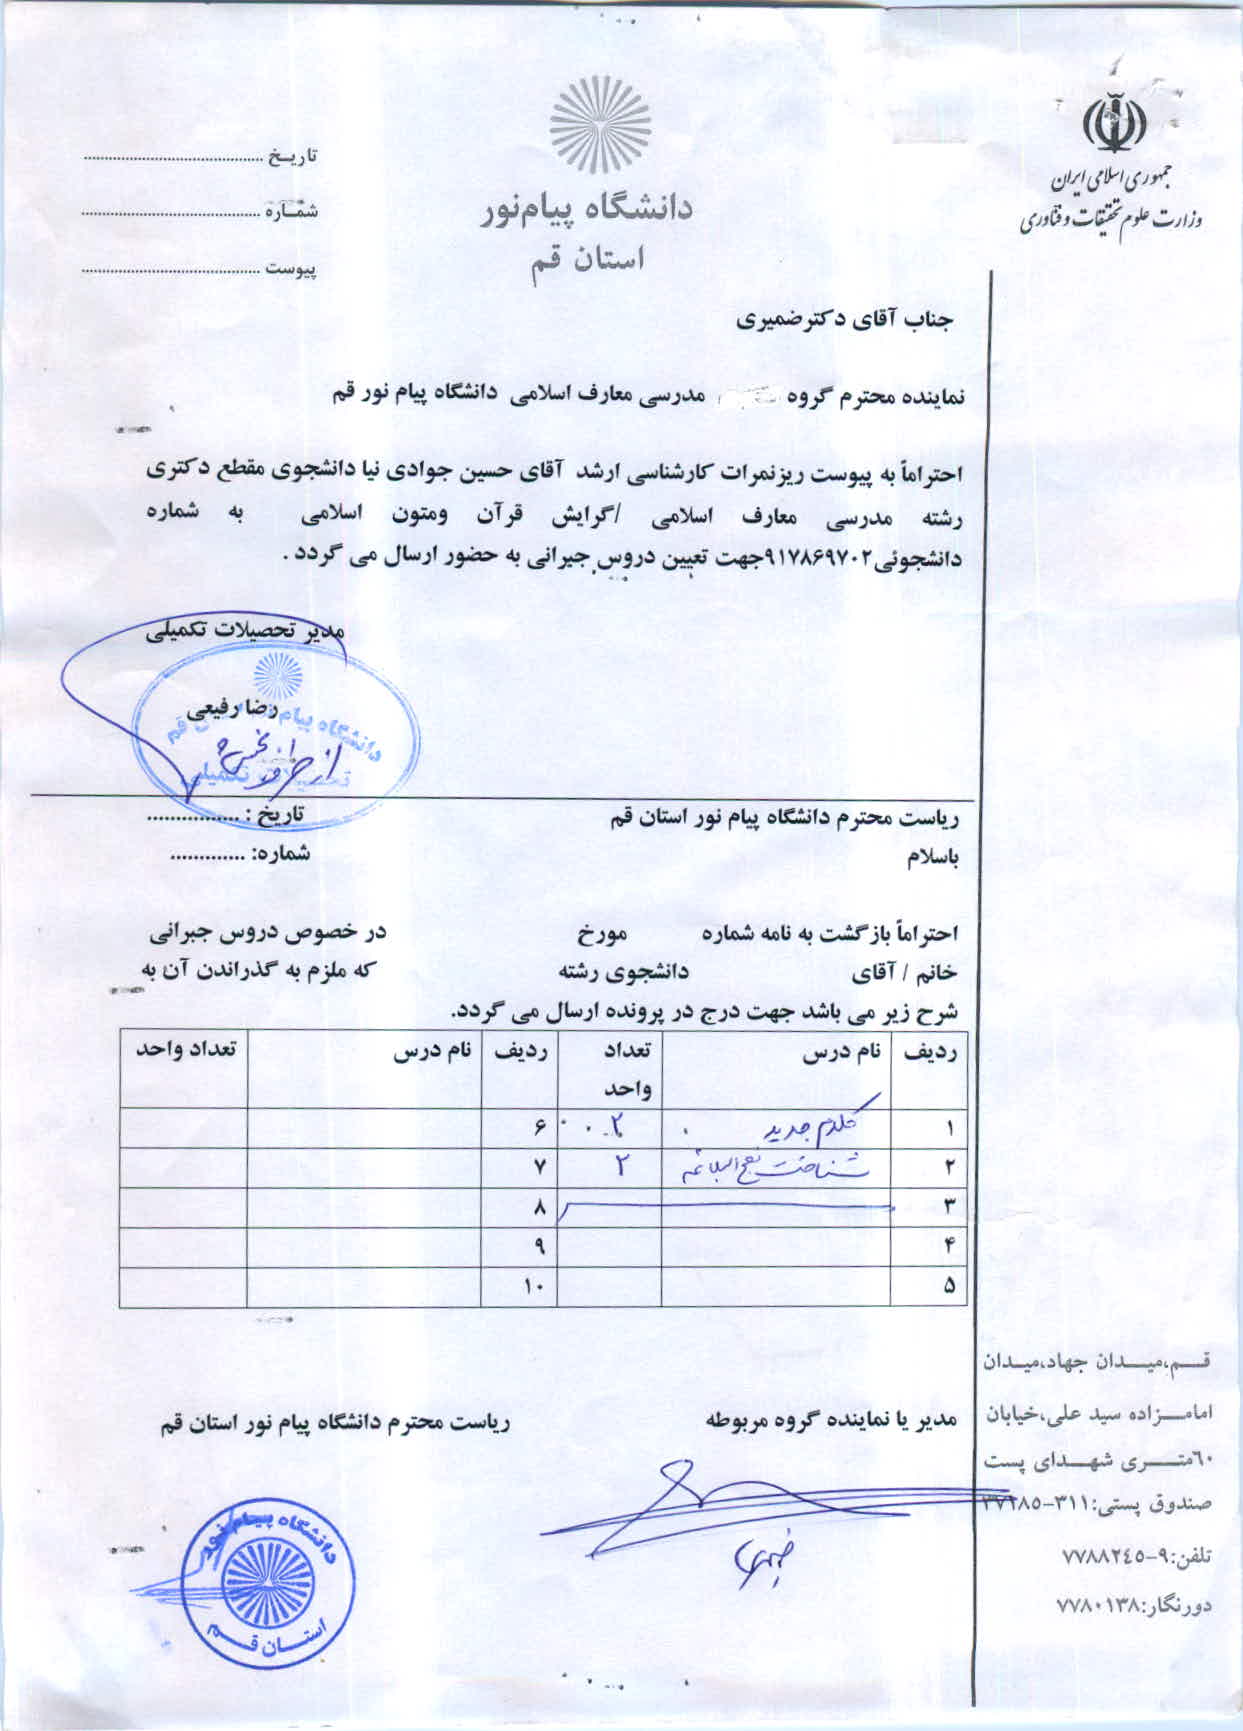 جمهوری اسلامی ایران
وزارت علوم تحقیقات و فناوری
دانشگاه پیام‌نور
استان قم
تاریخ ........................................
شماره ........................................
پیوست ........................................
جناب آقای دکترضمیری
نماینده محترم گروه مدرسی معارف اسلامی دانشگاه پیام نور قم
احتراماً به پیوست ریزنمرات کارشناسی ارشد آقای حسین جوادی نیا دانشجوی مقطع دکتری
رشته مدرسی معارف اسلامی /گرایش قرآن ومتون اسلامی به شماره
دانشجوئی۹۱۷۸۶۹۷۰۲جهت تعیین دروس جبرانی به حضور ارسال می گردد .
مدیر تحصیلات تکمیلی
رضا رفیعی
دانشگاه پیام نور استان قم
تحصیلات تکمیلی
از طرف
ریاست محترم دانشگاه پیام نور استان قم
تاریخ : ................
باسلام
شماره: .............
احتراماً بازگشت به نامه شماره مورخ در خصوص دروس جبرانی
خانم / آقای دانشجوی رشته که ملزم به گذراندن آن به
شرح زیر می باشد جهت درج در پرونده ارسال می گردد.
ردیف نام درس تعداد واحد ردیف نام درس تعداد واحد
۱ کلام جدید ۲ ۶
۲ شناخت نهج البلاغه ۲ ۷
۳ ۸
۴ ۹
۵ ۱۰
مدیر یا نماینده گروه مربوطه
ریاست محترم دانشگاه پیام نور استان قم
ضمیری
دانشگاه پیام نور
استان قم
قم،میدان جهاد،میدان
امامزاده سید علی،خیابان
۶۰متری شهدای پست
صندوق پستی:۳۱۱-۳۷۱۸۵
تلفن:۹-۷۷۸۸۲۴۵
دورنگار:۷۷۸۰۱۳۸